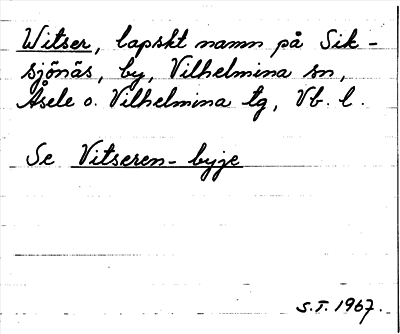 Witser, lapskt namn på Sik-
sjönäs, by, Vilhelmina sn,
Åsele o. Vilhelmina tg, Vb. l.
Se Vitseren-byje
S.T. 1967.